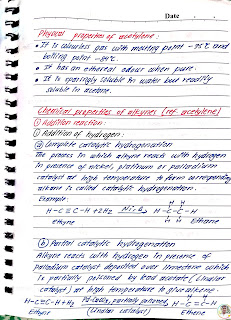 Date
Physical properties of acetylene:
• It is colourless gas with melting point -95°C and
boiling point -84°C.
• It has an ethereal odour when pure.
• It is sparingly soluble in water but readily
soluble in acetone.
Chemical properties of alkynes (ref. acetylene)
① Addition reaction:
① Addition of hydrogen:
ⓐ Complete catalytic hydrogenation
The process in which alkyne reacts with hydrogen
in presence of nickel, platinum or palladium
catalyst at high temperature to form corresponding
alkane is called catalytic hydrogenation.
Example:
H H
H-C≡C-H + 2H₂ Ni, Δ H-C-C-H
ethyne H H Ethane
ⓑ Partial catalytic hydrogenation
Alkyne reacts with hydrogen in presence of
palladium catalyst deposited over limestone which
is partially poisoned by lead acetate (Lindlar
catalyst) at high temperature to give alkene.
H-C≡C-H + H₂ Pd-CaCO₃, partially poisoned H-C=C-H
Ethyne (Lindlar catalyst) Ethene